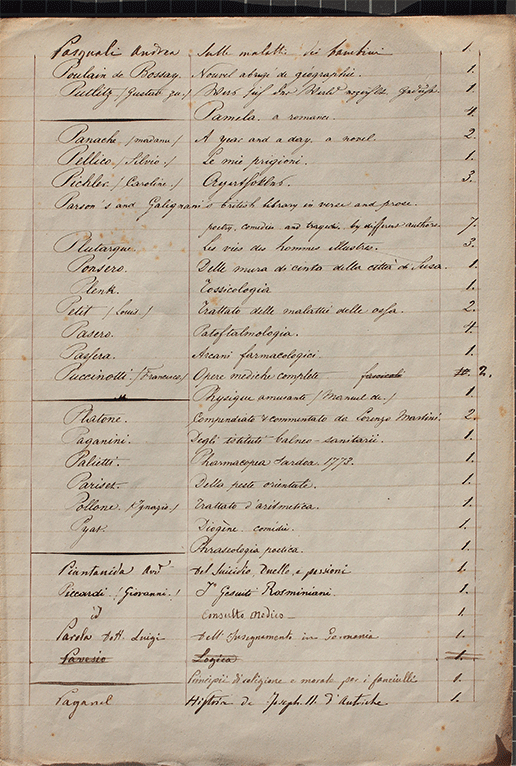 Pasquali Andrea Sulle malattie dei bambini 1.
Poulain de Bossay. Nouvel abrégé de géographie. 1.
Putlitz /Gustav zu/ Was sich der Wald 1.
Pamela a romance. 4.
Panache /madame/ A year and a day, a novel. 2.
Pellico /Silvio/ Le mie prigioni. 1.
Pichler /Caroline/ 3.
Parson's and Galignani's british library in verse and prose.
poetry, comedies and tragedies, by different authors. 7.
Plutarque. Les vies des hommes illustres. 3.
Ponsero. Delle mura di cinta della città di Susa. 1.
Plenk. Tossicologia 1.
Petit /Louis/ Trattato delle malattie delle ossa. 2.
Pasero. Patoftalmologia. 4.
Passera. Arcani farmacologici. 1.
Puccinotti /Francesco/ Opere mediche complete fascicoli 10. 2.
Physique amusante /Manuel de/ 1.
Platone. Compendiato e commentato da Lorenzo Martini. 2.
Paganini. Degli istituti balneo-sanitarii. 1.
Palietti. Pharmacopea Sardoa. 1773. 1.
Parises. Della peste orientale. 1.
Pollone /Ignazio/ Trattato d'aritmetica. 1.
Pyat. Diogène comédie. 1.
Phraseologia poetica. 1.
Piantanida Avv.º Del Suicidio, Duello, e passioni 1.
Piccardi /Giovanni/ I Gesuiti Rosminiani. 1.
id Consulto Medico – 1.
Parola Dott. Luigi Dell'Insegnamento in Germania 1.
Pavesio Logica 1.
Principii di religione e morale per i fanciulli 1.
Paganel Histoire de Joseph II d'Autriche 1.